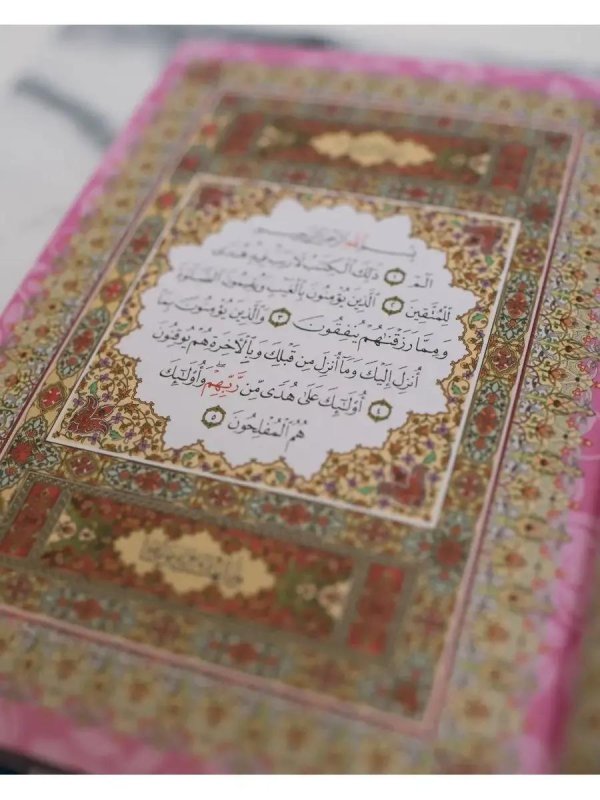 بِسْمِ اللَّهِ الرَّحْمَٰنِ الرَّحِيمِ
الٓمٓ ١ ذَٰلِكَ ٱلْكِتَٰبُ لَا رَيْبَ فِيهِ هُدًى
لِّلْمُتَّقِينَ ٢ ٱلَّذِينَ يُؤْمِنُونَ بِٱلْغَيْبِ وَيُقِيمُونَ ٱلصَّلَوٰةَ
وَمِمَّا رَزَقْنَٰهُمْ يُنفِقُونَ ٣ وَٱلَّذِينَ يُؤْمِنُونَ بِمَآ
أُنزِلَ إِلَيْكَ وَمَآ أُنزِلَ مِن قَبْلِكَ وَبِٱلْءَاخِرَةِ هُمْ يُوقِنُونَ
٤ أُو۟لَٰٓئِكَ عَلَىٰ هُدًى مِّن رَّبِّهِمْ ۖ وَأُو۟لَٰٓئِكَ
هُمُ ٱلْمُفْلِحُونَ ٥